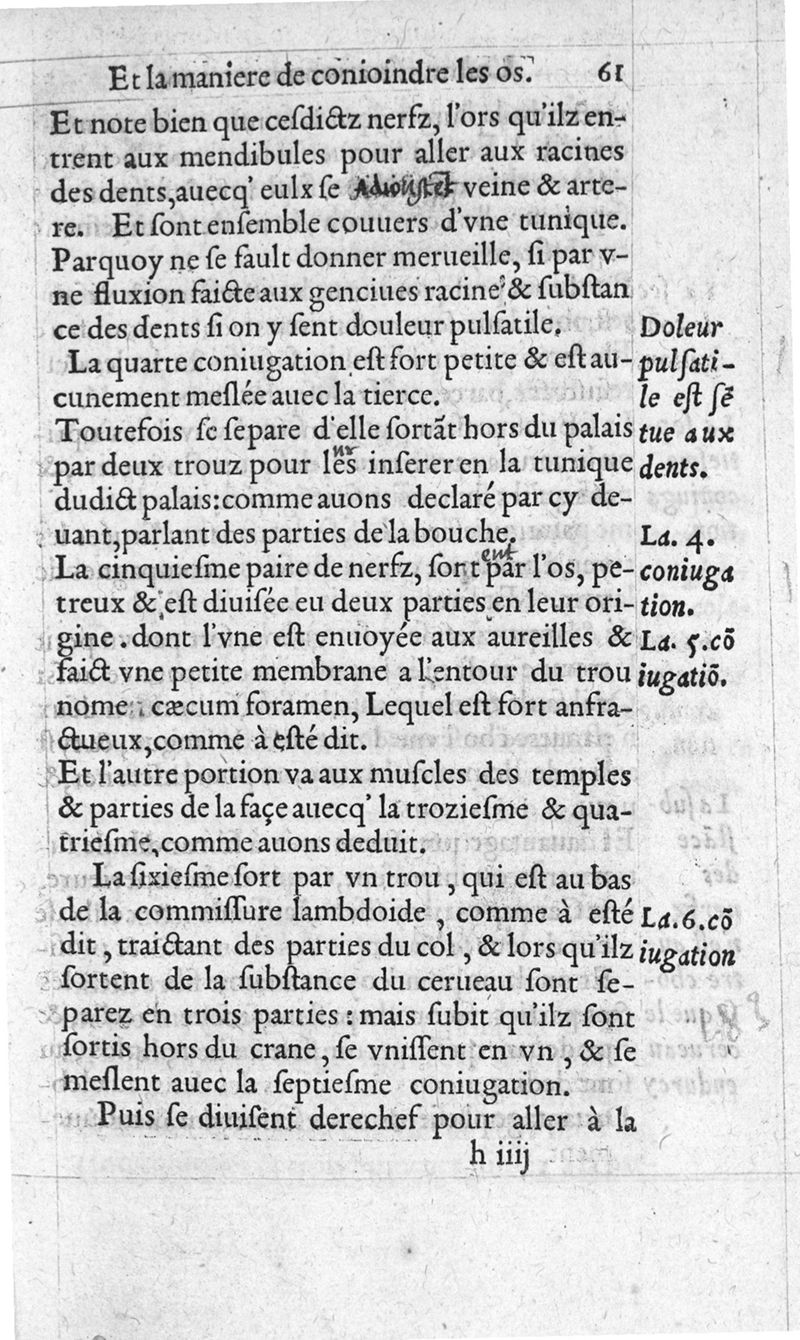 Et la maniere de conioindre les os. 61
Et note bien que ceſdictz nerfz, l'ors qu'ilz en-
trent aux mendibules pour aller aux racines
des dents,auecq' eulx ſe veine & arte-
re. Et ſont enſemble couuers d'vne tunique.
Parquoy ne ſe fault donner merueille, ſi par v-
ne fluxion faicte aux genciues racine & ſubſtan
ce des dents ſi on y ſent douleur pulſatile.
La quarte coniugation eſt fort petite & eſt au-
cunement meſlée auec la tierce.
Toutefois ſe ſepare d'elle ſortāt hors du palais
par deux trouz pour les inſerer en la tunique
dudict palais:comme auons declaré par cy de-
uant,parlant des parties de la bouche.
La cinquieſme paire de nerfz, ſort par l'os, pe-
treux & eſt diuiſée eu deux parties en leur ori-
gine.dont l'vne eſt enuoyée aux aureilles &
faict vne petite membrane a l'entour du trou
nome : cæcum foramen, Lequel eſt fort anfra-
ctueux,comme à eſté dit.
Et l'autre portion va aux muſcles des temples
& parties de la façe auecq' la trozieſme & qua-
trieſme,comme auons deduit.
La ſixieſme ſort par vn trou, qui eſt au bas
de la commiſſure lambdoide, comme à eſté
dit, traictant des parties du col, & lors qu'ilz
ſortent de la ſubſtance du cerueau ſont ſe-
parez en trois parties : mais ſubit qu'ilz ſont
ſortis hors du crane, ſe vniſſent en vn, & ſe
meſlent auec la ſeptieſme coniugation.
Puis ſe diuiſent derechef pour aller à la
h iiij
Doleur
pulſati-
le eſt ſē
tue aux
dents.
La. 4.
coniuga
tion.
La. 5.cō
iugatiō.
La.6.cō
iugation